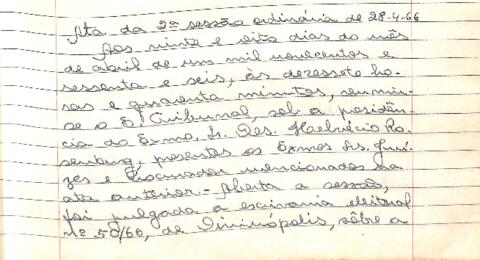 Ata da 2ª sessão ordinária de 28-4-66
Aos vinte e oito dias do mês
de abril de um mil novecentos e
sessenta e seis, às dezessete ho-
ras e quarenta minutos, reuniu-
se o E. Tribunal, sob a presidên-
cia do Exmo. Sr. Des. Helvécio Ro-
senburg, presentes os Exmos. Srs. Juí-
zes e Procurador mencionados na
ata anterior. - Aberta a sessão,
foi julgada a escrivania eleitoral
nº 50/66, de Divinópolis, sôbre a